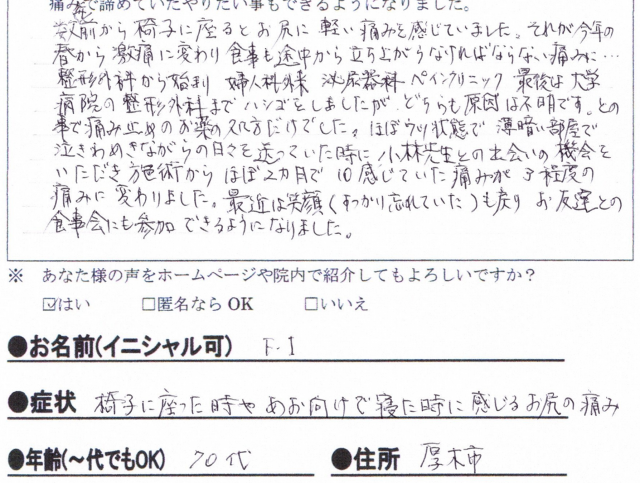 痛みで諦めていたやりたい事もできるようになりました。
数年前から椅子に座るとお尻に軽い痛みを感じていました。それが今年の
春から激痛に変わり食事も途中から立ち上がらなければならない痛みに…
整形外科から始まり 婦人科外来 泌尿器科 ペインクリニック 最後は大学
病院の整形外科までハシゴをしましたが、どちらも原因は不明です。との
事で痛み止めのお薬の処方だけでした。ほぼウツ状態で 薄暗い部屋で
泣きわめきながらの日々を送っていた時に小林先生との出会いの機会を
いただき施術からほぼ2ヵ月で 10感じていた痛みが 3程度の
痛みに変わりました。最近は笑顔(すっかり忘れていた)も戻り お友達との
食事会にも参加できるようになりました。
※ あなた様の声をホームページや院内で紹介してもよろしいですか?
☑はい □匿名なら OK □いいえ
●お名前(イニシャル可) F・I
●症状 椅子に座った時や あお向けで寝た時に感じるお尻の痛み
●年齢(~代でもOK) 70代 ●住所 厚木市